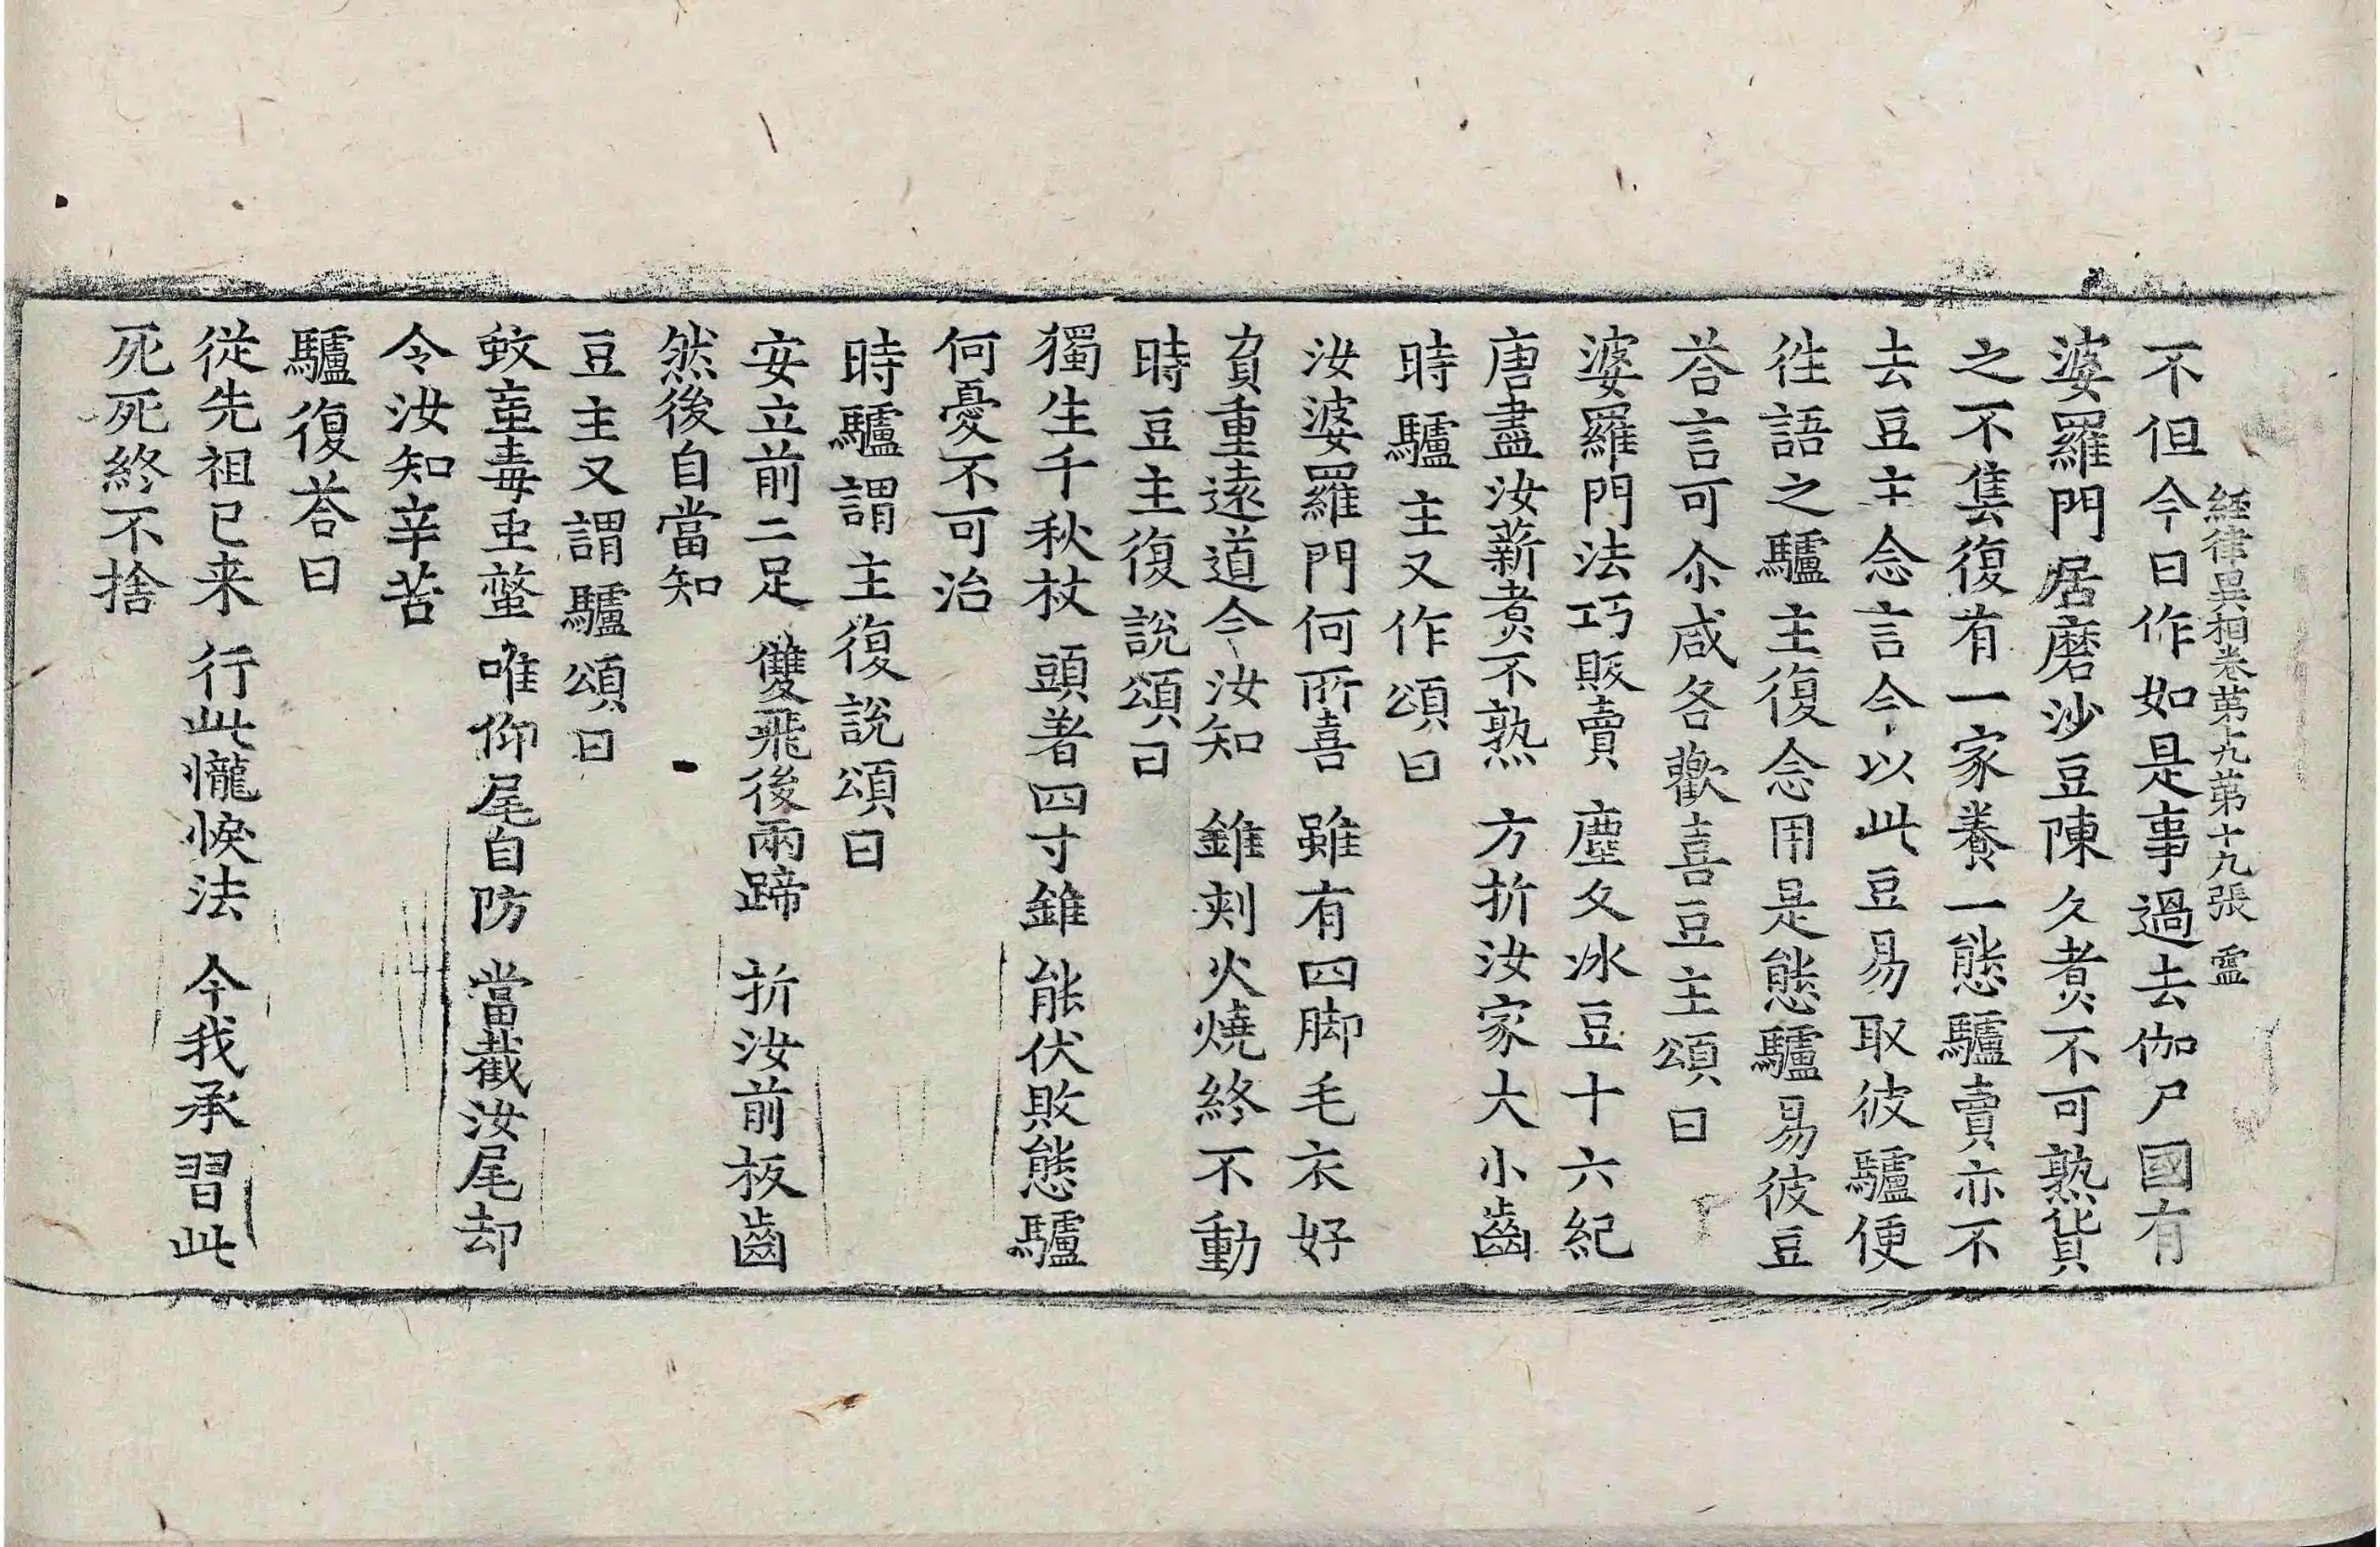 經律異相卷第十九第十九張 靈
不但今日作如是事過去伽尸國有
婆羅門居磨沙豆陳久煑不可熟貨
之不售復有一家養一態驢賣亦不
去豆主念言今以此豆易取彼驢便
往語之驢主復念用是態驢易彼豆
荅言可尒咸各歡喜豆主頌曰
婆羅門法巧販賣 塵久冰豆十六紀
唐盡汝薪煑不熟 方折汝家大小齒
時驢主又作頌曰
汝婆羅門何所喜 雖有四脚毛衣好
負重遠道今汝知 錐刾火燒終不動
時豆主復說頌曰
獨生千秋杖 頭著四寸錐 能伏敗態驢
何憂不可治
時驢謂主復說頌曰
安立前二足 雙飛後兩蹄 折汝前板齒
然後自當知
豆主又謂驢頌曰
蚊䖝毒䖝螫 唯仰尾自防 當截汝尾却
令汝知辛苦
驢復荅曰
從先祖已来 行此㦕悷法 今我承習此
死死終不捨